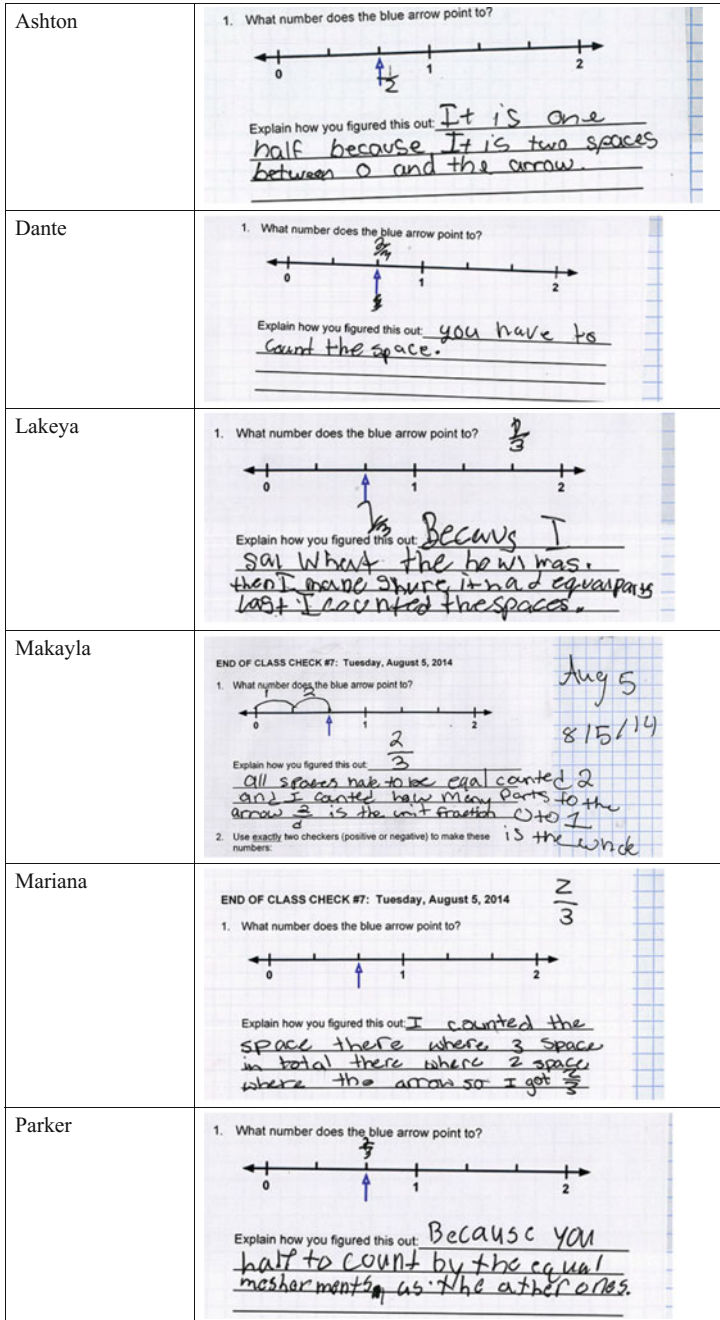 Ashton
1. What number does the blue arrow point to?
0 1 2
1/2
Explain how you figured this out: It is one
half because It is two spaces
between 0 and the arrow.
Dante
1. What number does the blue arrow point to?
0 1 2
Explain how you figured this out: you have to
count the space.
Lakeya
1. What number does the blue arrow point to?
2/3
0 1 2
2/3
Explain how you figured this out: Becaus I
sai what the howl was.
then I mane shure it had equal parts
last I counted the spaces.
Makayla
END OF CLASS CHECK #7: Tuesday, August 5, 2014
Aug 5
1. What number does the blue arrow point to?
1 2
0 1 2
8/5/14
2/3
Explain how you figured this out:
all spaces have to be eqal counted 2
and I counted how many parts to the
arrow is the unit fraction 0 to 1
is the whole
2. Use exactly two checkers (positive or negative) to make these
numbers:
Mariana
2/3
END OF CLASS CHECK #7: Tuesday, August 5, 2014
1. What number does the blue arrow point to?
0 1 2
Explain how you figured this out: I counted the
space there where 3 space
in total there where 2 space
where the arrow so I got 2/3
Parker
1. What number does the blue arrow point to?
2/3
0 1 2
Explain how you figured this out: Because you
haft to count by the equal
mesherments as the ather ones.